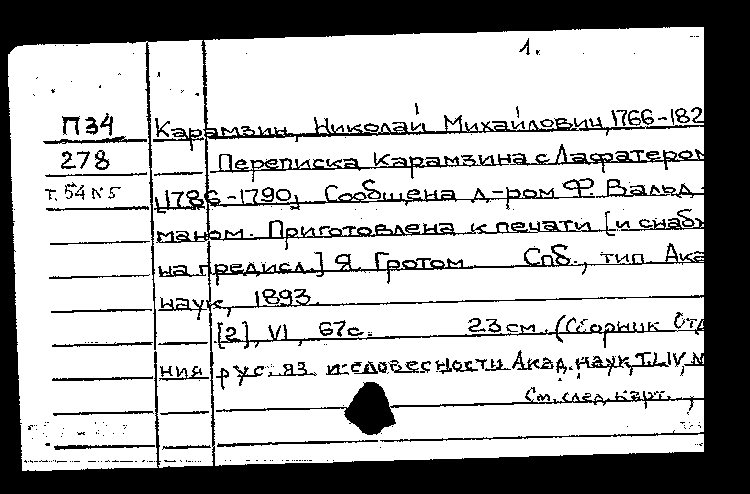 1.
П34 Карамзин, Николай Михайлович, 1766-182
278 Переписка Карамзина с Лафатером
т. 54 № 5 [1786-1790] Сообщена д-ром Ф. Вальд-
маном. Приготовлена к печати [и снаб
на предисл.] Я. Гротом Спб., тип. Ака
наук, 1893.
[2], VI, 67с. 23см. (Сборник Отд
ния рус. яз. и словесности Акад. наук, Т. LIV, №
См. след. карт.